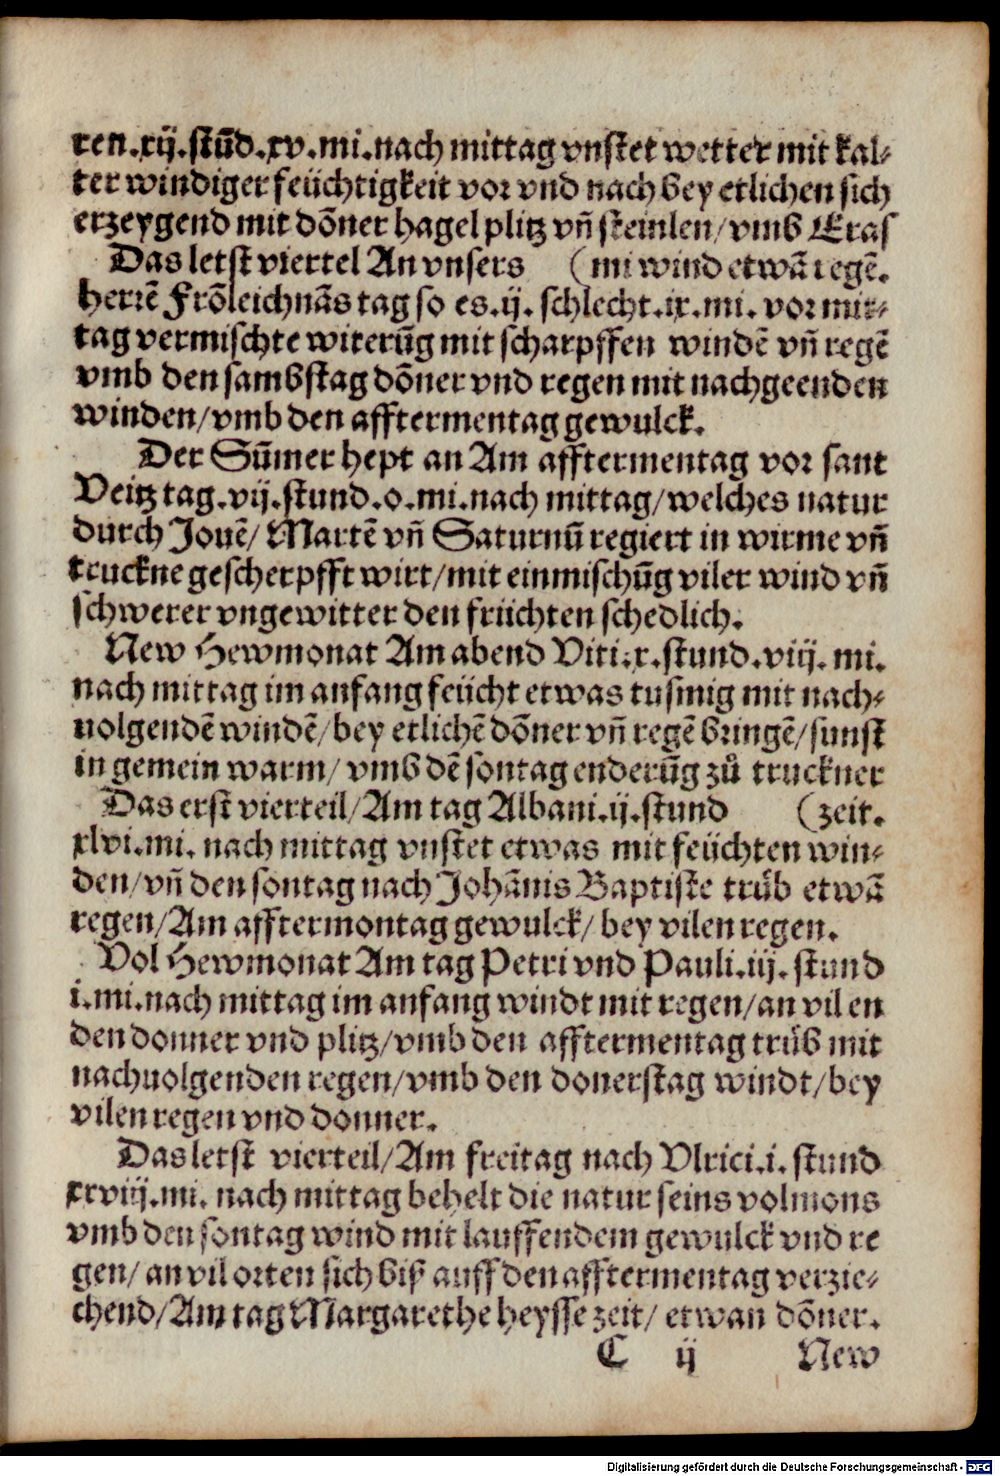 ren.xij.stūd.xv.mi.nach mittag vnstet wetter mit kal-
ter windiger feüchtigkeit vor vnd nach bey etlichen sich
erzeygend mit dōner hagel plitz vn̄ steinlen/vmb Eras
Das letst viertel An vnsers (mi wind etwā regē.
herrē Frōleichnās tag so es.ij. schlecht.ix.mi. vor mit-
tag vermischte witerūg mit scharpffen windē vn̄ regē
vmb den sambstag dōner vnd regen mit nachgeenden
winden/vmb den afftermentag gewulck.
Der Sūmer hept an Am afftermentag vor sant
Veitz tag.vij.stund.o.mi.nach mittag/welches natur
durch Jouē/ Martē vn̄ Saturnū regiert in wirme vn̄
truckne gescherpfft wirt/mit einmischūg viler wind vn̄
schwerer vngewitter den früchten schedlich.
New Hewmonat Am abend Viti.x.stund.viij. mi.
nach mittag im anfang feücht etwas tusmig mit nach-
uolgendē windē/bey etlichē dōner vn̄ regē bringē/sunst
in gemein warm/ vmb dē sontag enderūg zů truckner
Das erst vierteil/Am tag Albani.ij.stund (zeit.
xlvi.mi. nach mittag vnstet etwas mit feüchten win-
den/vn̄ den sontag nach Johānis Baptiste trüb etwā
regen/Am afftermontag gewulck/ bey vilen regen.
Vol Hewmonat Am tag Petri vnd Pauli.iij. stund
i.mi.nach mittag im anfang windt mit regen/an vil en
den donner vnd plitz/vmb den afftermentag trüb mit
nachuolgenden regen/vmb den donerstag windt/bey
vilen regen vnd donner.
Das letst vierteil/Am freitag nach Vlrici.i. stund
xxviij.mi. nach mittag behelt die natur seins volmons
vmb den sontag wind mit lauffendem gewulck vnd re
gen/ an vil orten sich biß auff den afftermentag verzie-
chend/Am tag Margarethe heysse zeit/ etwan dōner.
C ij New
Digitalisierung gefördert durch die Deutsche Forschungsgemeinschaft - DFG